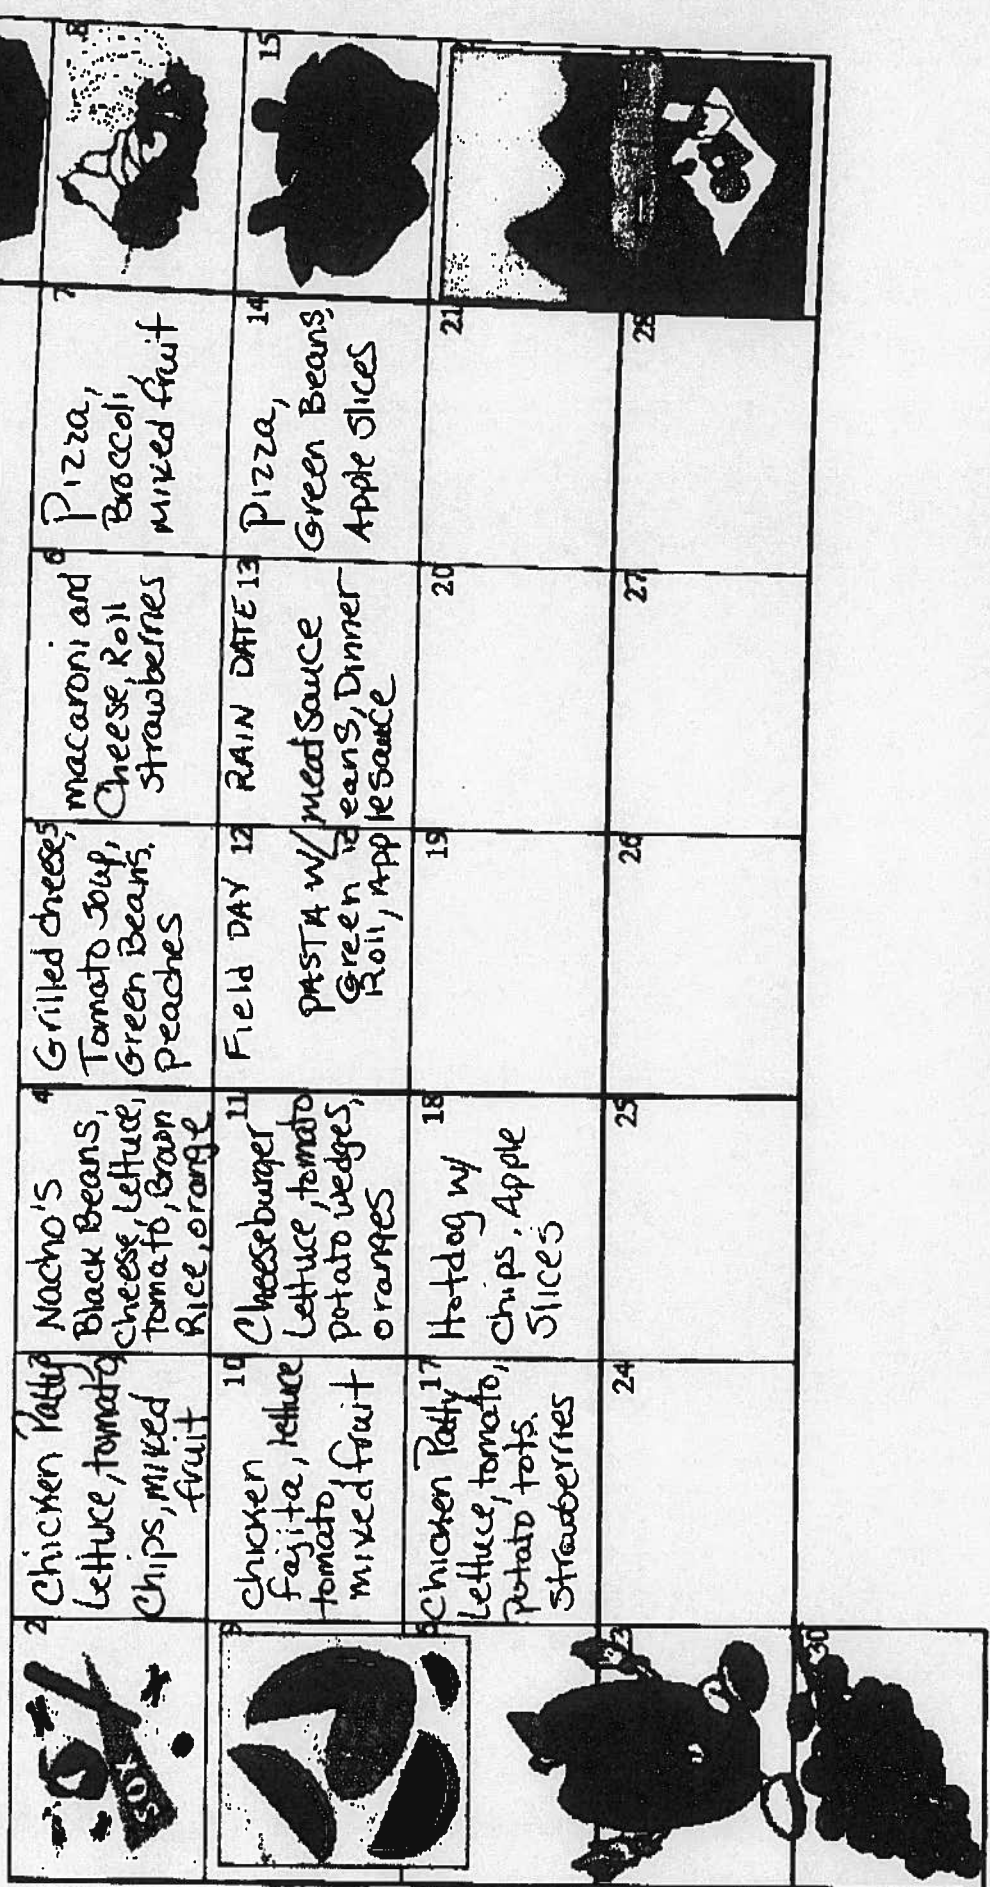 2
SOX
3
Chicken Patty
Lettuce, tomato,
Chips, mixed
fruit
4
Nacho's
Black Beans,
Cheese, Lettuce,
Tomato, Brown
Rice, orange
5
Grilled cheese,
Tomato Soup,
Green Beans,
peaches
6
macaroni and
Cheese, Roll
strawberries
7
Pizza,
Broccoli,
mixed fruit
8
9
10
Chicken
fajita, lettuce
tomato,
mixed fruit
11
Cheeseburger
Lettuce, tomato
potato wedges,
oranges
12
Field DAY
13
RAIN DATE
PASTA w/ meat sauce
Green Beans, Dinner
Roll, Applesauce
14
Pizza,
Green Beans,
Apple Slices
15
17
Chicken Patty
lettuce, tomato,
potato tots.
strawberries
18
Hotdog w/
Chips, Apple
Slices
19
20
21
24
25
26
27
28
30